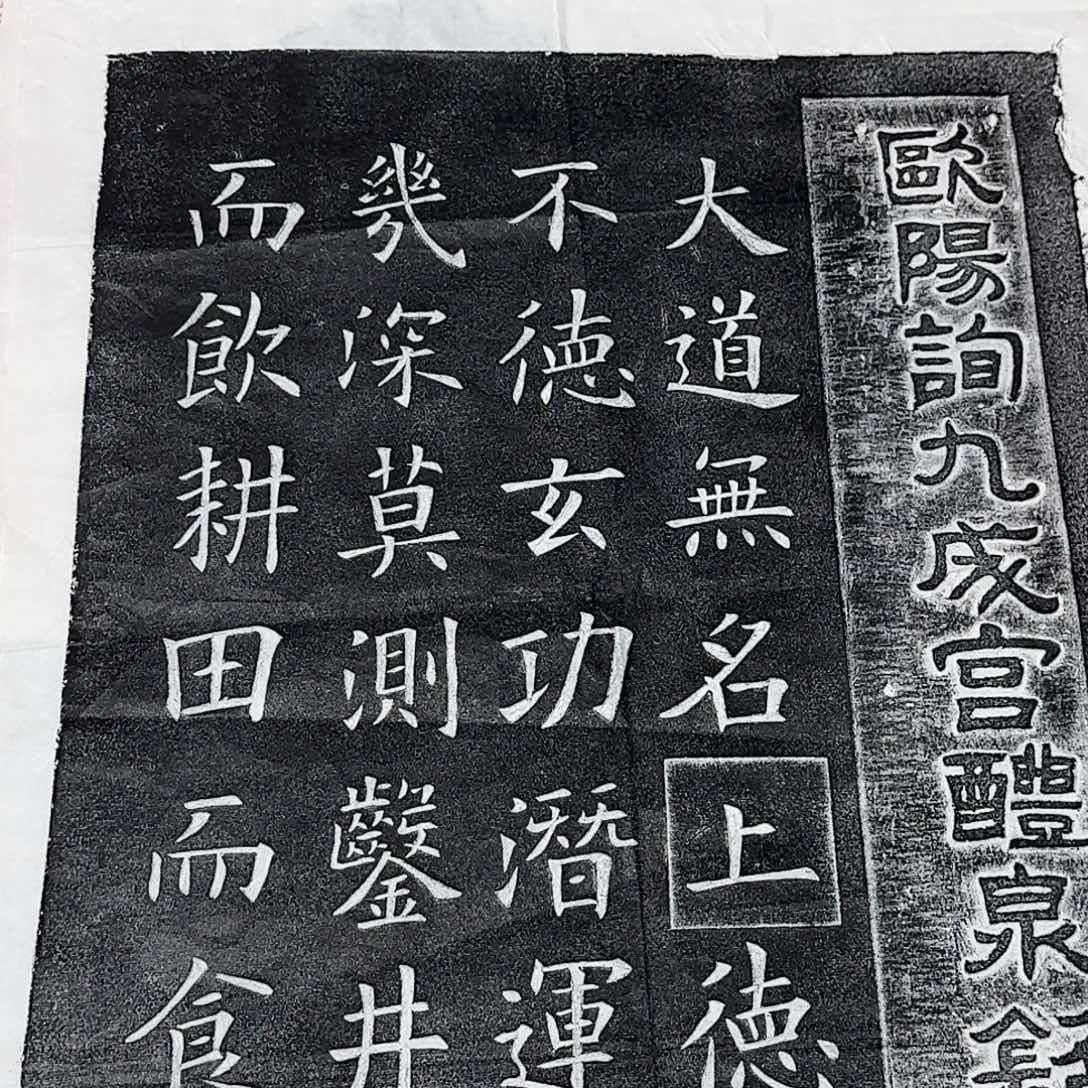 歐陽詢九成宮醴泉銘
大道無名上德
不德玄功潛運
幾深莫測鑿井
而飲耕田而食